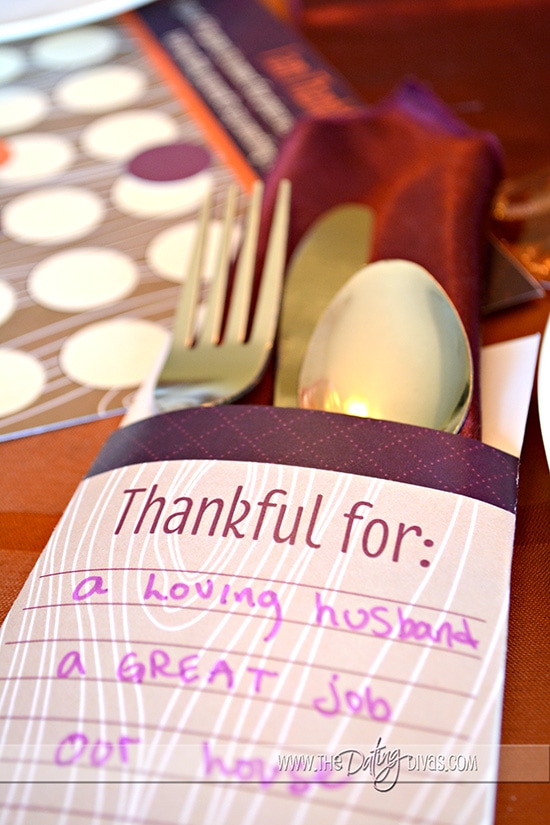 Thankful for:
a loving husband
a GREAT job
our house
www.THE Dating DIVAS.COM